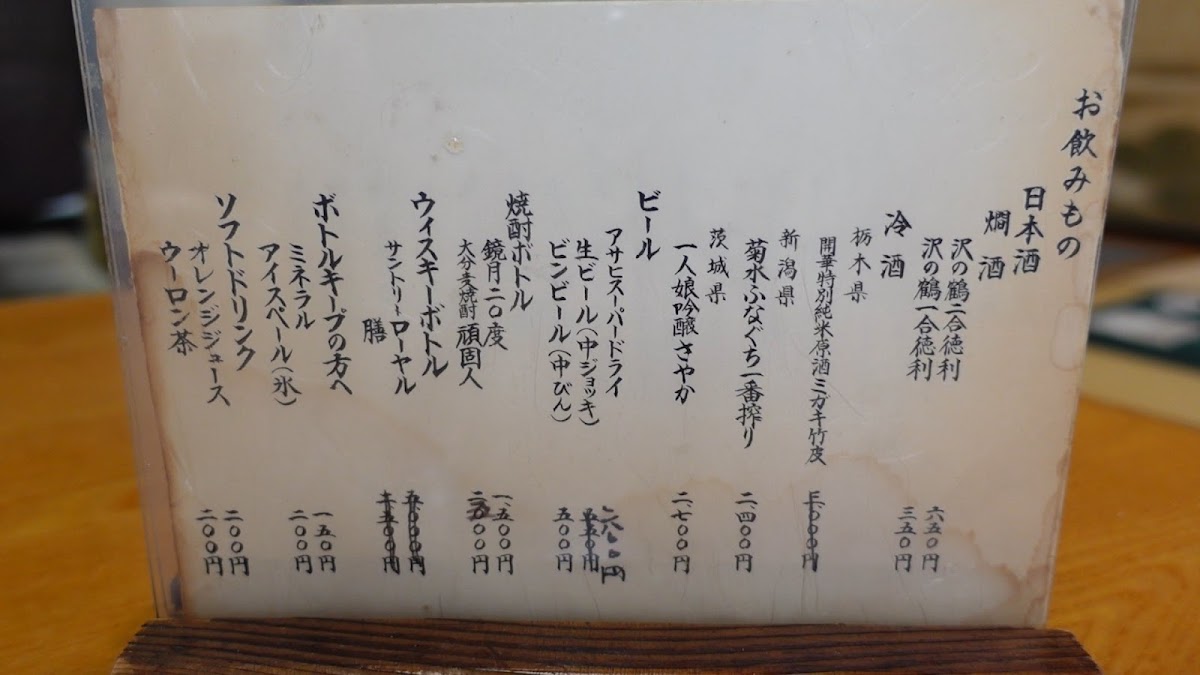 お飲みもの
日本酒
燗酒
沢の鶴二合徳利 六五〇円
沢の鶴一合徳利 三五〇円
冷酒
栃木県
開華特別純米原酒ミガキ竹皮 三、〇〇〇円
新潟県
菊水ふなぐち一番搾り 二、四〇〇円
茨城県
一人娘吟醸さやか 二、七〇〇円
ビール
アサヒスーパードライ
生ビール(中ジョッキ) 五五〇円 六〇〇円
ビンビール(中びん) 五〇〇円
焼酎ボトル
鏡月二〇度 一、五〇〇円
大分麦焼酎 頑固人 〇〇円
ウィスキーボトル
サントリーローヤル 五、〇〇〇円
膳 〇〇円
ボトルキープの方へ
ミネラル 一五〇円
アイスペール(氷) 二〇〇円
ソフトドリンク
オレンジジュース 二〇〇円
ウーロン茶 二〇〇円